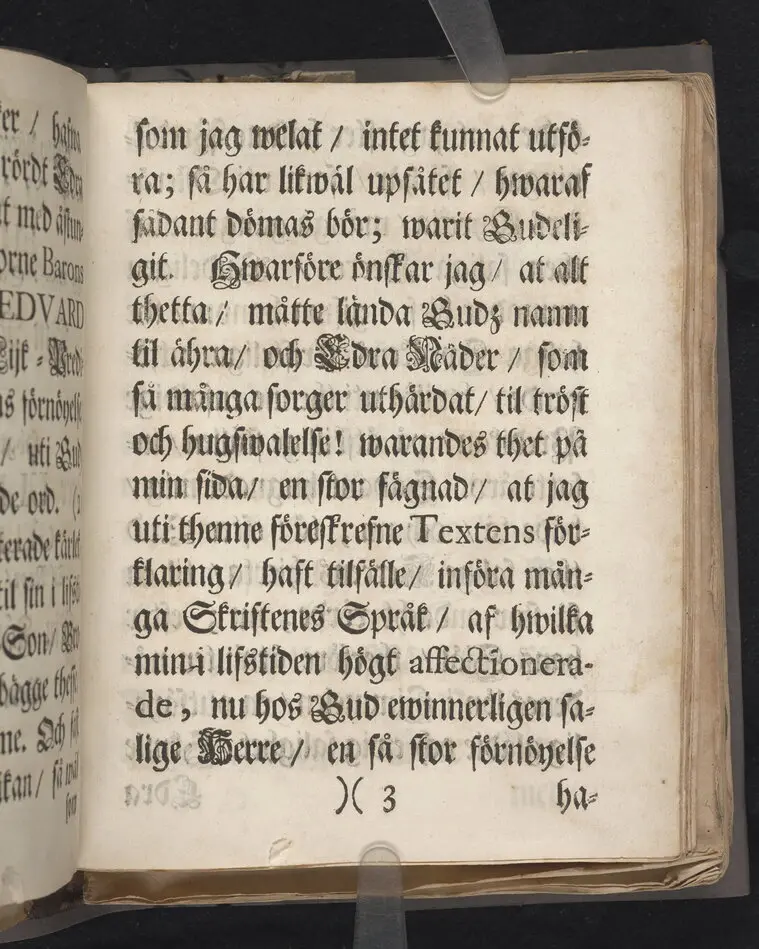 er /
rördt
t med
orne Barons
EDVARD
Lijk-Pred-
/ uti
de ord.
til sin i
Son/
bägge
ne. Och
kan / så
som
som jag welat / intet kunnat utfö-
ra; så har likwäl upsåtet / hwaraf
sådant dömas bör; warit Gudeli-
git. Hwarföre önskar jag / at alt
thetta / måtte lända Gudz namn
til ähra / och Edra Nåder / som
så många sorger uthärdat / til tröst
och hugswalelse! warandes thet på
min sida / en stor fägnad / at jag
uti thenne föreskrefne Textens för-
klaring / haft tilfälle / införa mån-
ga Skriftenes Språk / af hwilka
min i lifstiden högt affectionera-
de, nu hos Gud ewinnerligen sa-
lige Herre / en så stor förnöyelse
)( 3
ha-